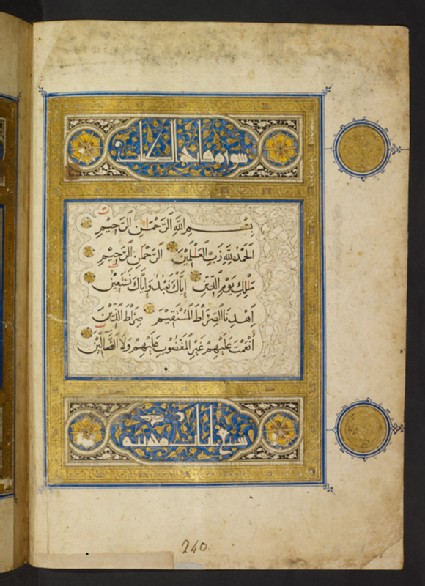 سورة فاتحة الكتاب
بِسْمِ اللَّهِ الرَّحْمَٰنِ الرَّحِيمِ
الْحَمْدُ لِلَّهِ رَبِّ الْعَٰلَمِينَ الرَّحْمَٰنِ الرَّحِيمِ
مَٰلِكِ يَوْمِ الدِّينِ إِيَّاكَ نَعْبُدُ وَإِيَّاكَ نَسْتَعِينُ
اهْدِنَا الصِّرَاطَ الْمُسْتَقِيمَ صِرَاطَ الَّذِينَ
أَنْعَمْتَ عَلَيْهِمْ غَيْرِ الْمَغْضُوبِ عَلَيْهِمْ وَلَا الضَّالِّينَ
سبع آيات
240.